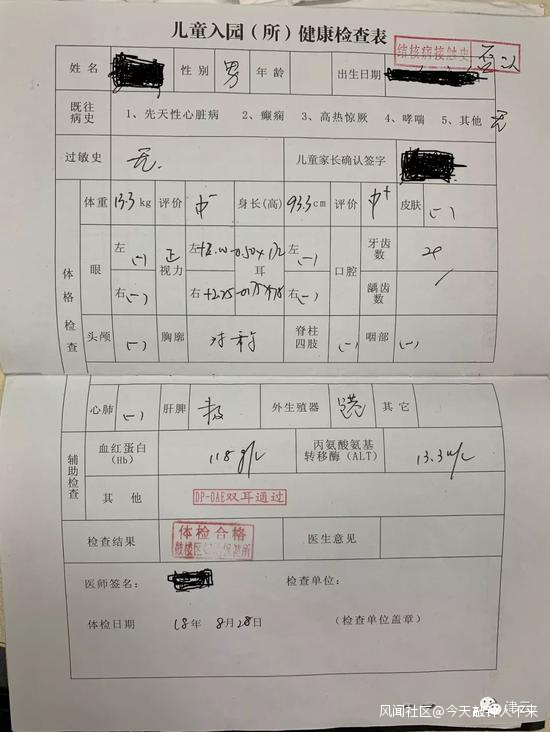 儿童入园（所）健康检查表
结核病接触史 否认
姓名 性别 男 年龄 出生日期
既往病史 1、先天性心脏病 2、癫痫 3、高热惊厥 4、哮喘 5、其他 无
过敏史 无. 儿童家长确认签字
体格检查
体重 13.3 kg 评价 中- 身长(高) 93.3 cm 评价 中+ 皮肤 (-)
眼 左 (-) 右 (-) 视力 正 左 右 +2.25 耳 左 (-) 右 (-) 口腔 牙齿数 龋齿数 /
头颅 (-) 胸廓 对称 脊柱四肢 (-) 咽部 (-)
心肺 (-) 肝脾 外生殖器 其它
辅助检查
血红蛋白(Hb) 118 g/L 丙氨酸氨基转移酶(ALT) 13.3 u/L
其他 DP-OAE双耳通过
检查结果 体检合格 医生意见
鼓楼区
医师签名: 检查单位:
体检日期 18年 8月28日 (检查单位盖章)
津云
风闻社区@今天敲神人下来